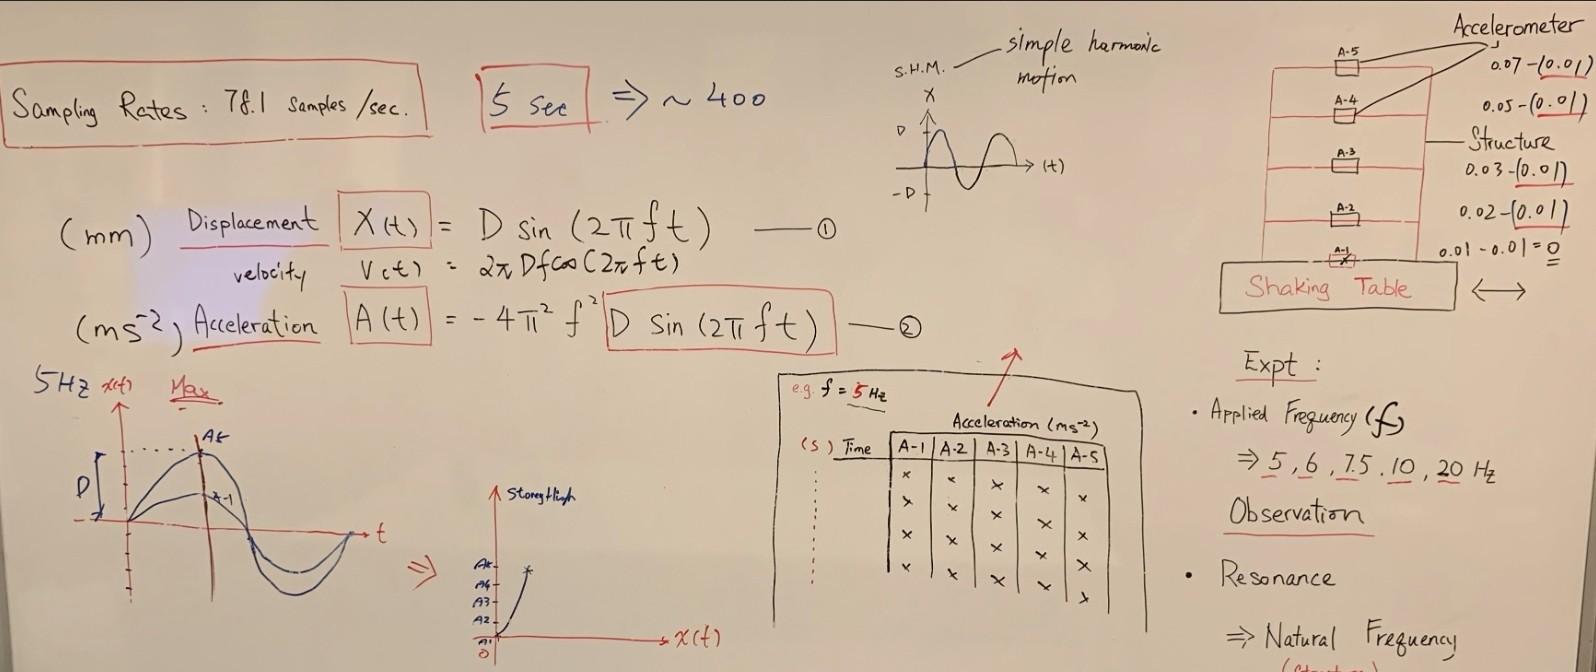 Sampling Rates : 78.1 Samples /sec.
5 sec ⇒ ~ 400
(mm) Displacement X(t) = D sin (2πft) ①
velocity V(t) = 2πDfcos(2πft)
(ms⁻²) Acceleration A(t) = -4π² f² D Sin (2πft) ②
S.H.M. simple harmonic
motion
X
D
(t)
-D
Accelerometer
A-5
0.07-(0.01)
A-4
0.05-(0.01)
Structure
A-3
0.03-(0.01)
A-2
0.02-(0.01)
A-1
0.01-0.01=0
Shaking Table
5Hz x(t) Max
A5
D
A-1
t
⇒
Storey High
A5
A4
A3
A2
A1
0
x(t)
e.g. f = 5 Hz
Acceleration (ms⁻²)
(s) Time A-1 A-2 A-3 A-4 A-5
Expt :
• Applied Frequency (f)
⇒ 5, 6, 7.5, 10, 20 Hz
Observation
• Resonance
⇒ Natural Frequency